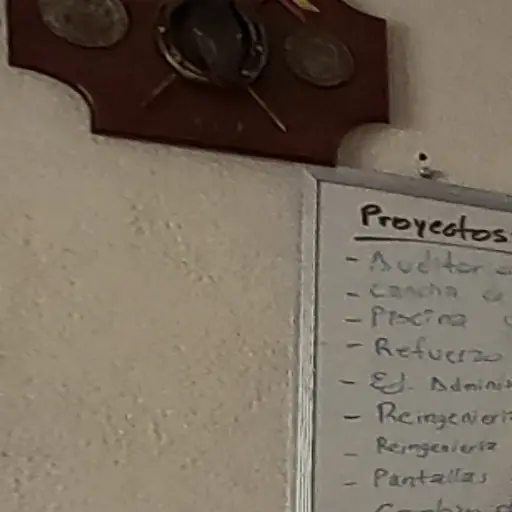 Proyectos
- Auditor
- Cancha de
- Piscina
- Refuerzo
- Ed. Adminis
- Reingenieri
- Reingenieria
- Pantallas